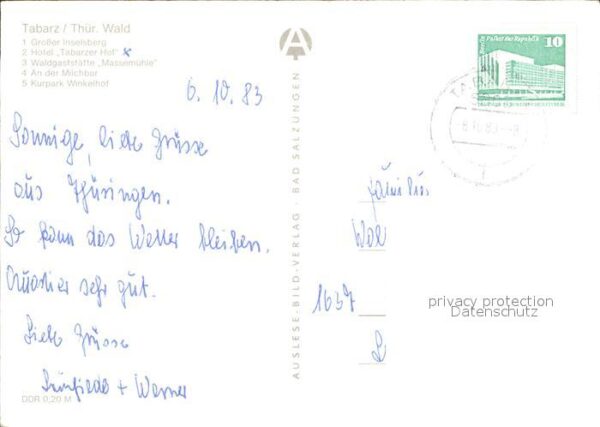 Tabarz / Thür. Wald
1 Großer Inselsberg
2 Hotel „Tabarzer Hof" x
3 Waldgaststätte „Massemühle"
4 An der Milchbar
5 Kurpark Winkelhof
6. 10. 83
Sonnige, liebe Grüsse
aus Thüringen.
So kann das Wetter bleiben.
Quartier sehr gut.
Liebe Grüsse
+ Werner
DDR 0,20 M
AUSLESE-BILD-VERLAG · BAD SALZUNGEN
A
Berlin Palast der Republik
10
TABARZ
-6.10.83
1
Familie
Wol
1637
privacy protection
Datenschutz